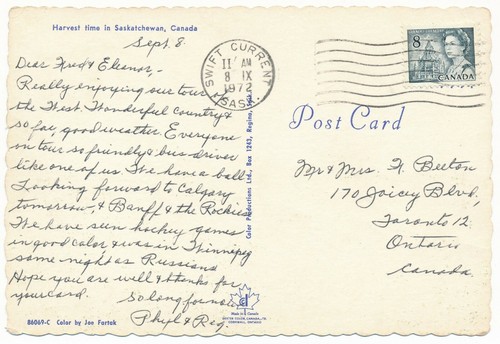 Harvest time in Saskatchewan, Canada
Sept. 8
Dear Fred & Eleanor,-
Really enjoying our tour of
the West. Wonderful country &
so far, good weather. Everyone
on tour so friendly & bus driver
like one of us. We have a ball.
Looking forward to Calgary
tomorrow, & Banff & the Rockies
We have seen hockey games
in good color & was in Winnipeg
same night as Russians
Hope you are well & thanks for
your card.
So long for now
Phyl & Reg.
86069-C Color by Joe Fartak
Color Productions Ltd., Box 1243, Regina, Sask.
SWIFT CURRENT
11 AM
8 IX
1972
SASK.
8
CANADA
Post Card
Mr & Mrs. F. Beeton
170 Joicey Blvd,
Toronto 12
Ontario
Canada.
Made in Canada
CORNWALL, ONTARIO